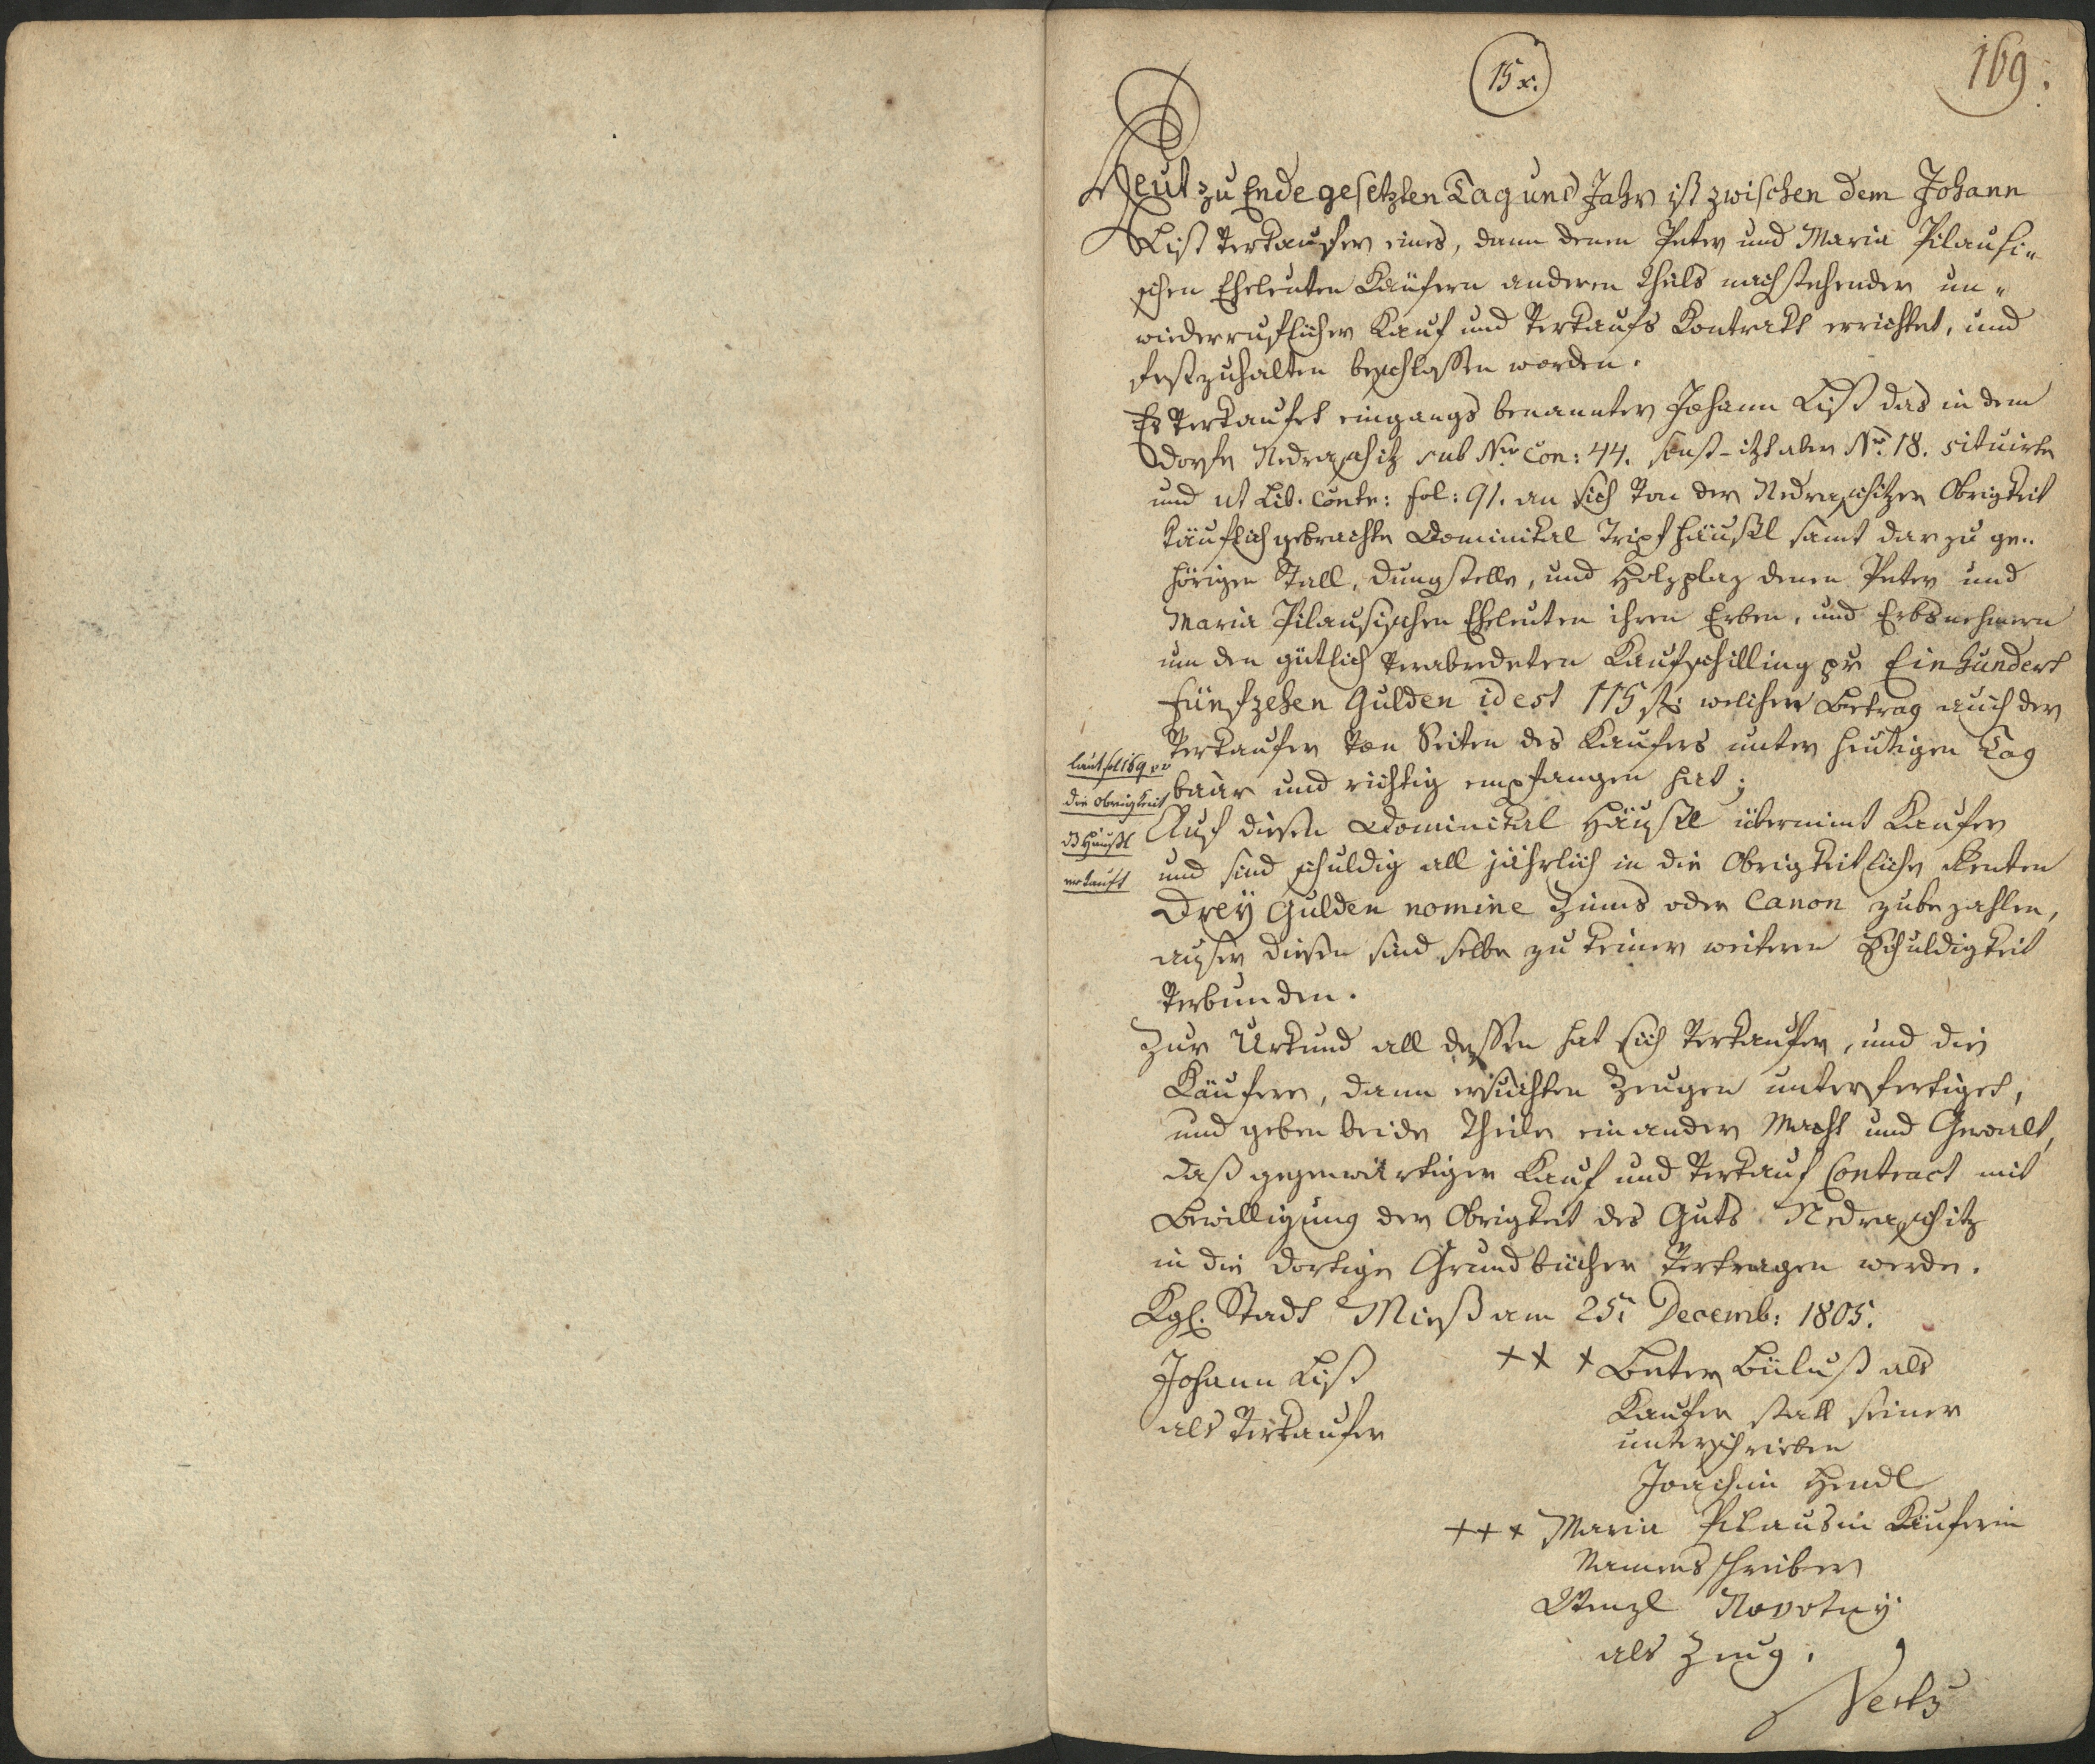 15 x.
169.
Heut zu Ende gesetzten Tag und Jahr ist zwischen dem Johann
List Verkaufer eines, dann denen Peter und Maria Pilausi-
schen Eheleuten Käufern anderen Theils nachstehender un-
wiederruflicher Kauf und Verkaufs Kontrakt errichtet, und
festzuhalten beschlossen worden.
Es Verkaufet eingangs benannter Johann List das in dem
Dorfe Nedraschitz sub Nro Con: 44. sonst - itzt aber No. 18. situirte
und ut Lib. Contr: fol: 91. an sich von der Nedraschitzer Obrigkeit
käuflich gebrachte Dominikal Tripfhäusel samt darzu ge-
hörigen Stall, Dungstelle, und Holzplaz denen Peter und
Maria Pilausischen Eheleuten ihren Erben, und Erbsnehmern
um den gütlich verabredeten Kaufschilling pr Einhundert
Fünfzehen Gulden id est 115 f: welchen Betrag auch der
Verkaufer von Seiten des Kaufers unter heutigen Tag
baar und richtig empfangen hat;
laut fol 169 vv
die Obrigkeit
ds Häusl
verkauft
Auf diesen Dominikal Häusel übernimt Kaufer
und sind schuldig all jährlich in die Obrigkeitliche Renten
Drey Gulden nomine Zinns oder Canon zubezahlen,
ausser diesen sind selbe zu keiner weiteren Schuldigkeit
Verbunden.
Zur Urkund all dessen hat sich Verkaufer, und die
Käufere, dann ersuchten Zeugen unterfertiget,
und geben beide Theile einander Macht und Gewalt,
daß gegenwärtiger Kauf und Verkauf Contract mit
Bewilligung der Obrigkeit des Guts Nedraschitz
in die dortige Grundbücher Vertragen werde.
Kgl. Stadt Mieß am 25n Decemb: 1805.
Johann List
als Verkaufer
+ + + Beter Biluß als
Kaufer statt seiner
unterschrieben
Joachim Hendl
+ + + Maria Pilausin Käuferin
Namensschreiber
Wenzl Novotny
als Zeug.